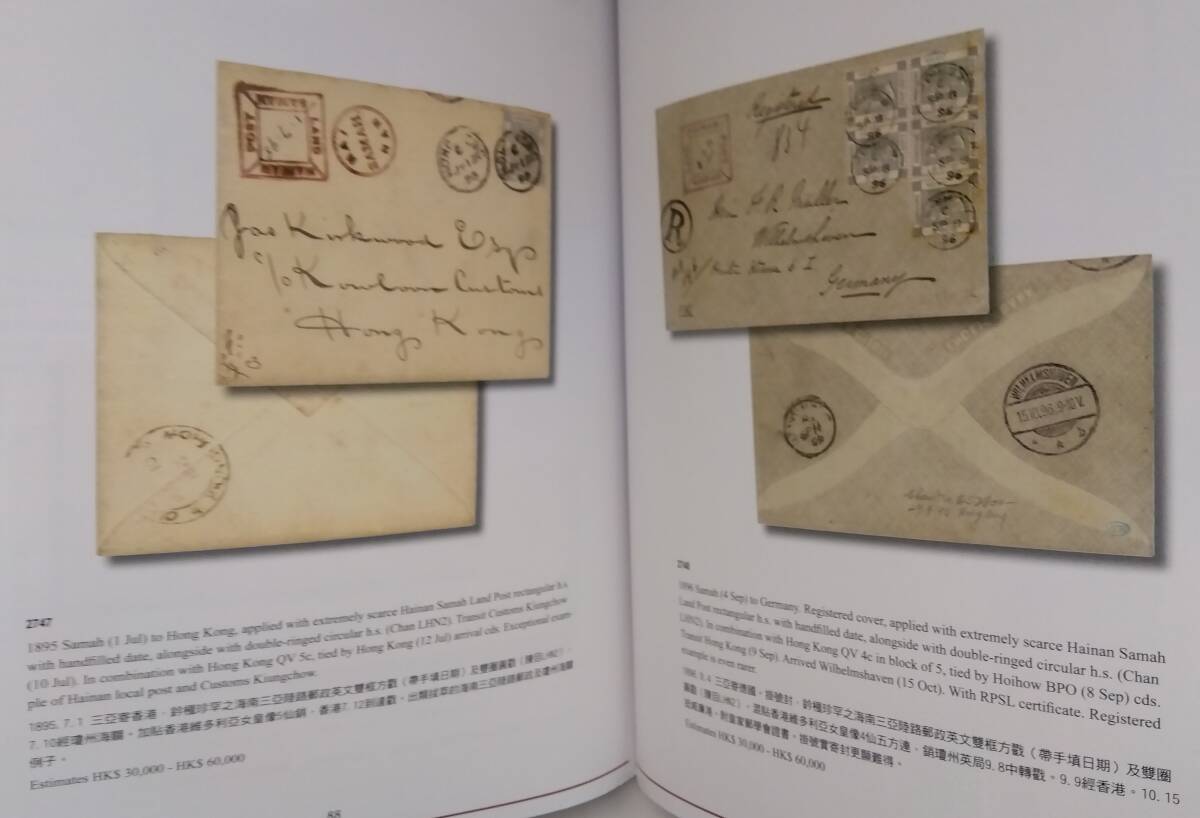 POST
LAND
HAINAN
SAMAH
Jas Kirkwood Esq
c/o Kowloon Customs
Hong Kong
2747
1895 Samah (1 Jul) to Hong Kong, applied with extremely scarce Hainan Samah Land Post rectangular h.s.
with handfilled date, alongside with double-ringed circular h.s. (Chan LHN2). Transit Customs Kiungchow
(10 Jul). In combination with Hong Kong QV 5c, tied by Hong Kong (12 Jul) arrival cds. Exceptional exam-
ple of Hainan local post and Customs Kiungchow.
1895. 7. 1 三亞寄香港,鈐極珍罕之海南三亞陸路郵政英文雙框方戳(帶手填日期)及雙圈戳(陳目LHN2),
7. 10經瓊州海關。加貼香港維多利亞女皇像5仙銷,香港7. 12到達戳,出類拔萃的海南三亞陸路郵政及瓊州海關
例子。
Estimates HK$ 30,000 - HK$ 60,000
88
Registered
184
R
Wilhelmshaven
Germany
WILHELMSHAVEN
15.10.96.9-10V.
2748
1896 Samah (4 Sep) to Germany. Registered cover, applied with extremely scarce Hainan Samah
Land Post rectangular h.s. with handfilled date, alongside with double-ringed circular h.s. (Chan
LHN2). In combination with Hong Kong QV 4c in block of 5, tied by Hoihow BPO (8 Sep) cds.
Transit Hong Kong (9 Sep). Arrived Wilhelmshaven (15 Oct). With RPSL certificate. Registered
example is even rarer.
1896. 9. 4 三亞寄德國,掛號封,鈐極珍罕之海南三亞陸路郵政英文雙框方戳(帶手填日期)及雙圈
圓戳(陳目LHN2),混貼香港維多利亞女皇像4仙五方連,銷瓊州英局9. 8中轉戳。9. 9經香港。10. 15
抵威廉港。附皇家郵學會證書,掛號實寄封更顯難得。
Estimates HK$ 30,000 - HK$ 60,000